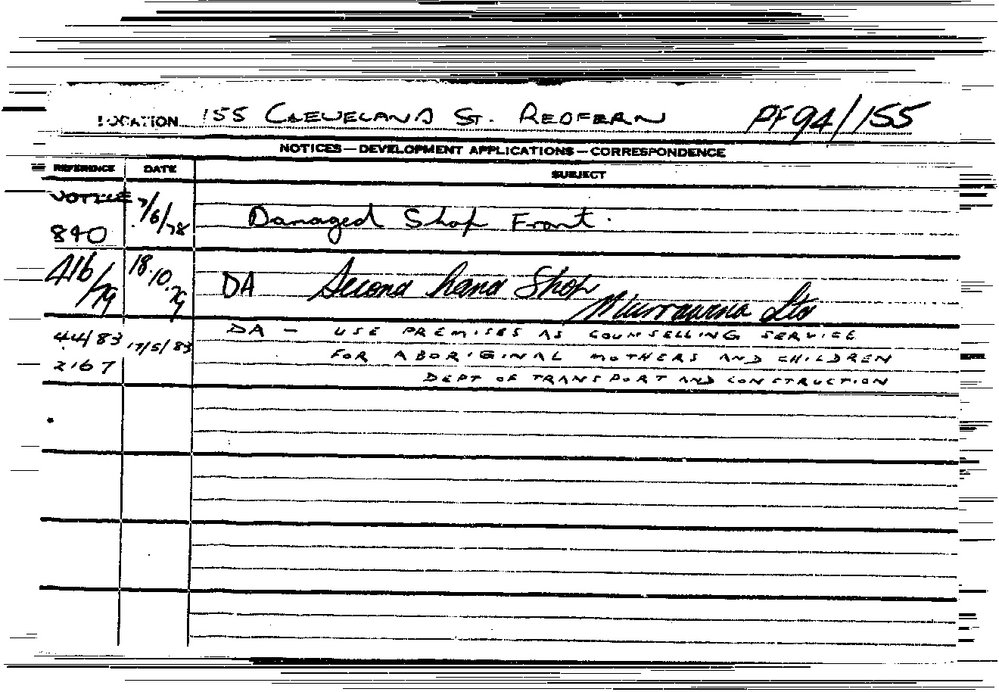 LOCATION 155 CLEVELAND ST. REDFERN PF94/155
NOTICES—DEVELOPMENT APPLICATIONS—CORRESPONDENCE
REFERENCE DATE SUBJECT
NOTICE 7/6/78 Damaged Shop Front.
840
416/79 18.10.79 DA Second hand Shop
Murrawina Ltd
44/83 17/5/83 DA — USE PREMISES AS COUNSELLING SERVICE
2167 FOR ABORIGINAL MOTHERS AND CHILDREN
DEPT OF TRANSPORT AND CONSTRUCTION